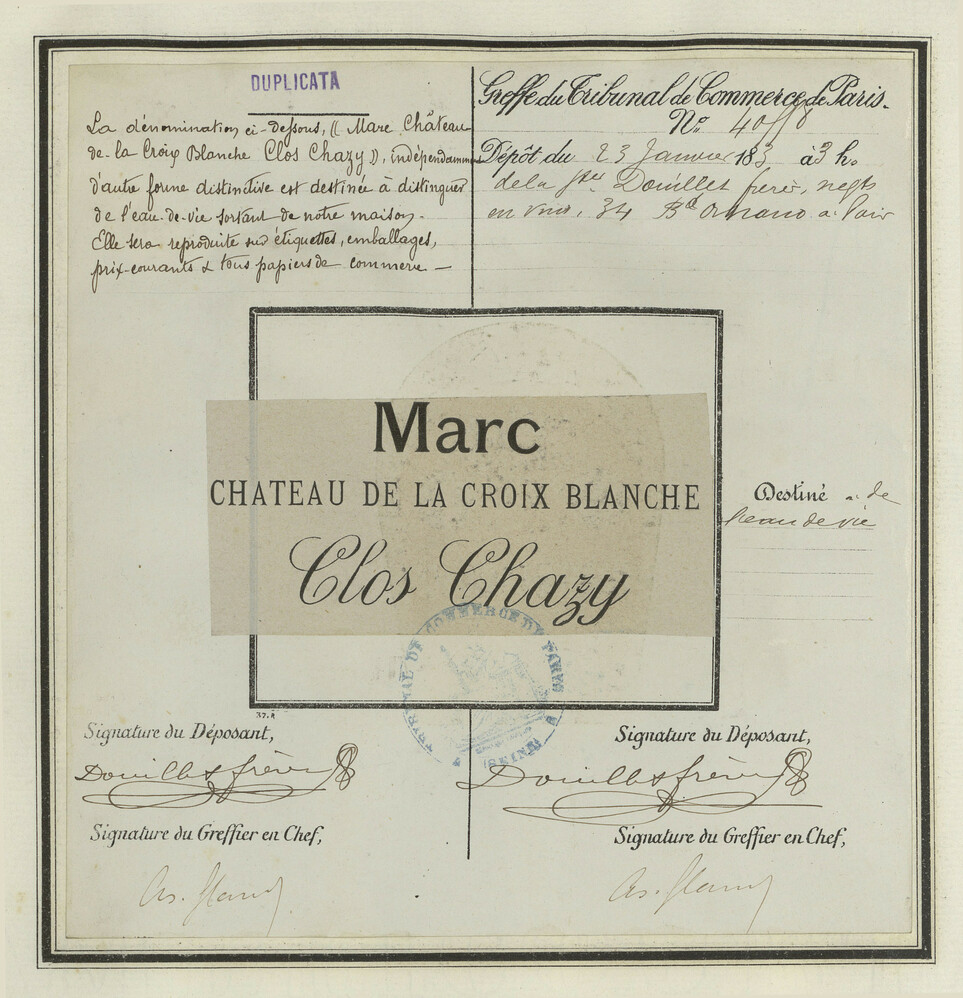 DUPLICATA
La dénomination ci-dessous, (( Marc Château
de la Croix Blanche Clos Chazy )), indépendamment
d'autre forme distinctive est destinée à distinguer
de l'eau-de-vie sortant de notre maison.
Elle sera reproduite sur étiquettes, emballages,
prix-courants & tous papiers de commerce —
Greffe du Tribunal de Commerce de Paris.
No.
Dépôt du 23 Janvier 18 à 3 h.
de la Douillet frères, negts
en vins, 34 Bd Ornano à Paris
Marc
CHATEAU DE LA CROIX BLANCHE
Clos Chazy
Destiné à de
l'eau de vie
TRIBUNAL DE COMMERCE DE PARIS
(SEINE)
Signature du Déposant,
Douillet frères
Signature du Greffier en Chef,
Signature du Déposant,
Douillet frères
Signature du Greffier en Chef,